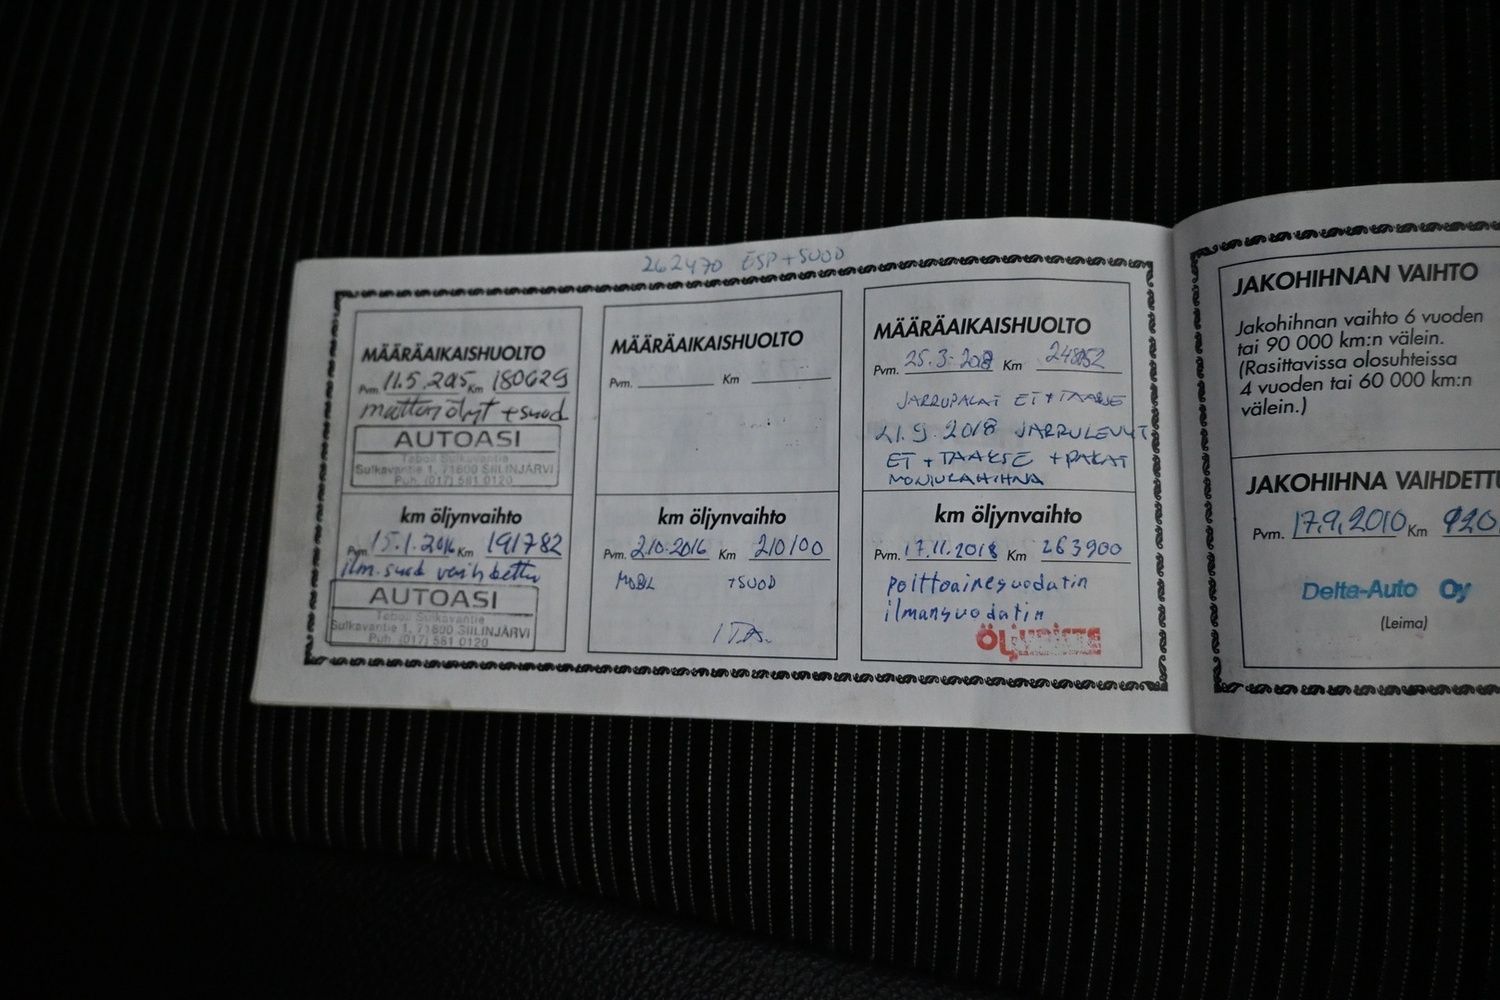 262470 ESP + SUOD
MÄÄRÄAIKAISHUOLTO
Pvm. 11.5.2015 Km 180629
moottoriöljyt + suod
AUTOASI
Teboil Sulkavantie
Sulkavantie 1, 71800 SIILINJÄRVI
Puh. (017) 581 0120
km öljynvaihto
Pvm. 15.1.2016 Km 191782
ilm. suod vaihdettu
AUTOASI
Teboil Sulkavantie
Sulkavantie 1, 71800 SIILINJÄRVI
Puh. (017) 581 0120
MÄÄRÄAIKAISHUOLTO
Pvm. Km
km öljynvaihto
Pvm. 2.10.2016 Km 210100
MOBIL +SUOD
ITA.
MÄÄRÄAIKAISHUOLTO
Pvm. 25.3.2018 Km
JARRUPALAT ET + TAAKSE
21.9.2018 JARRULEVYT
ET + TAAKSE + PALAT
MONIURAHIHNA
km öljynvaihto
Pvm. 17.11.2018 Km 263900
polttoainesuodatin
ilmansuodatin
JAKOHIHNAN VAIHTO
Jakohihnan vaihto 6 vuoden
tai 90 000 km:n välein.
(Rasittavissa olosuhteissa
4 vuoden tai 60 000 km:n
välein.)
JAKOHIHNA VAIHDETTU
Pvm. 17.9.2010 Km 920
Delta-Auto Oy
(Leima)